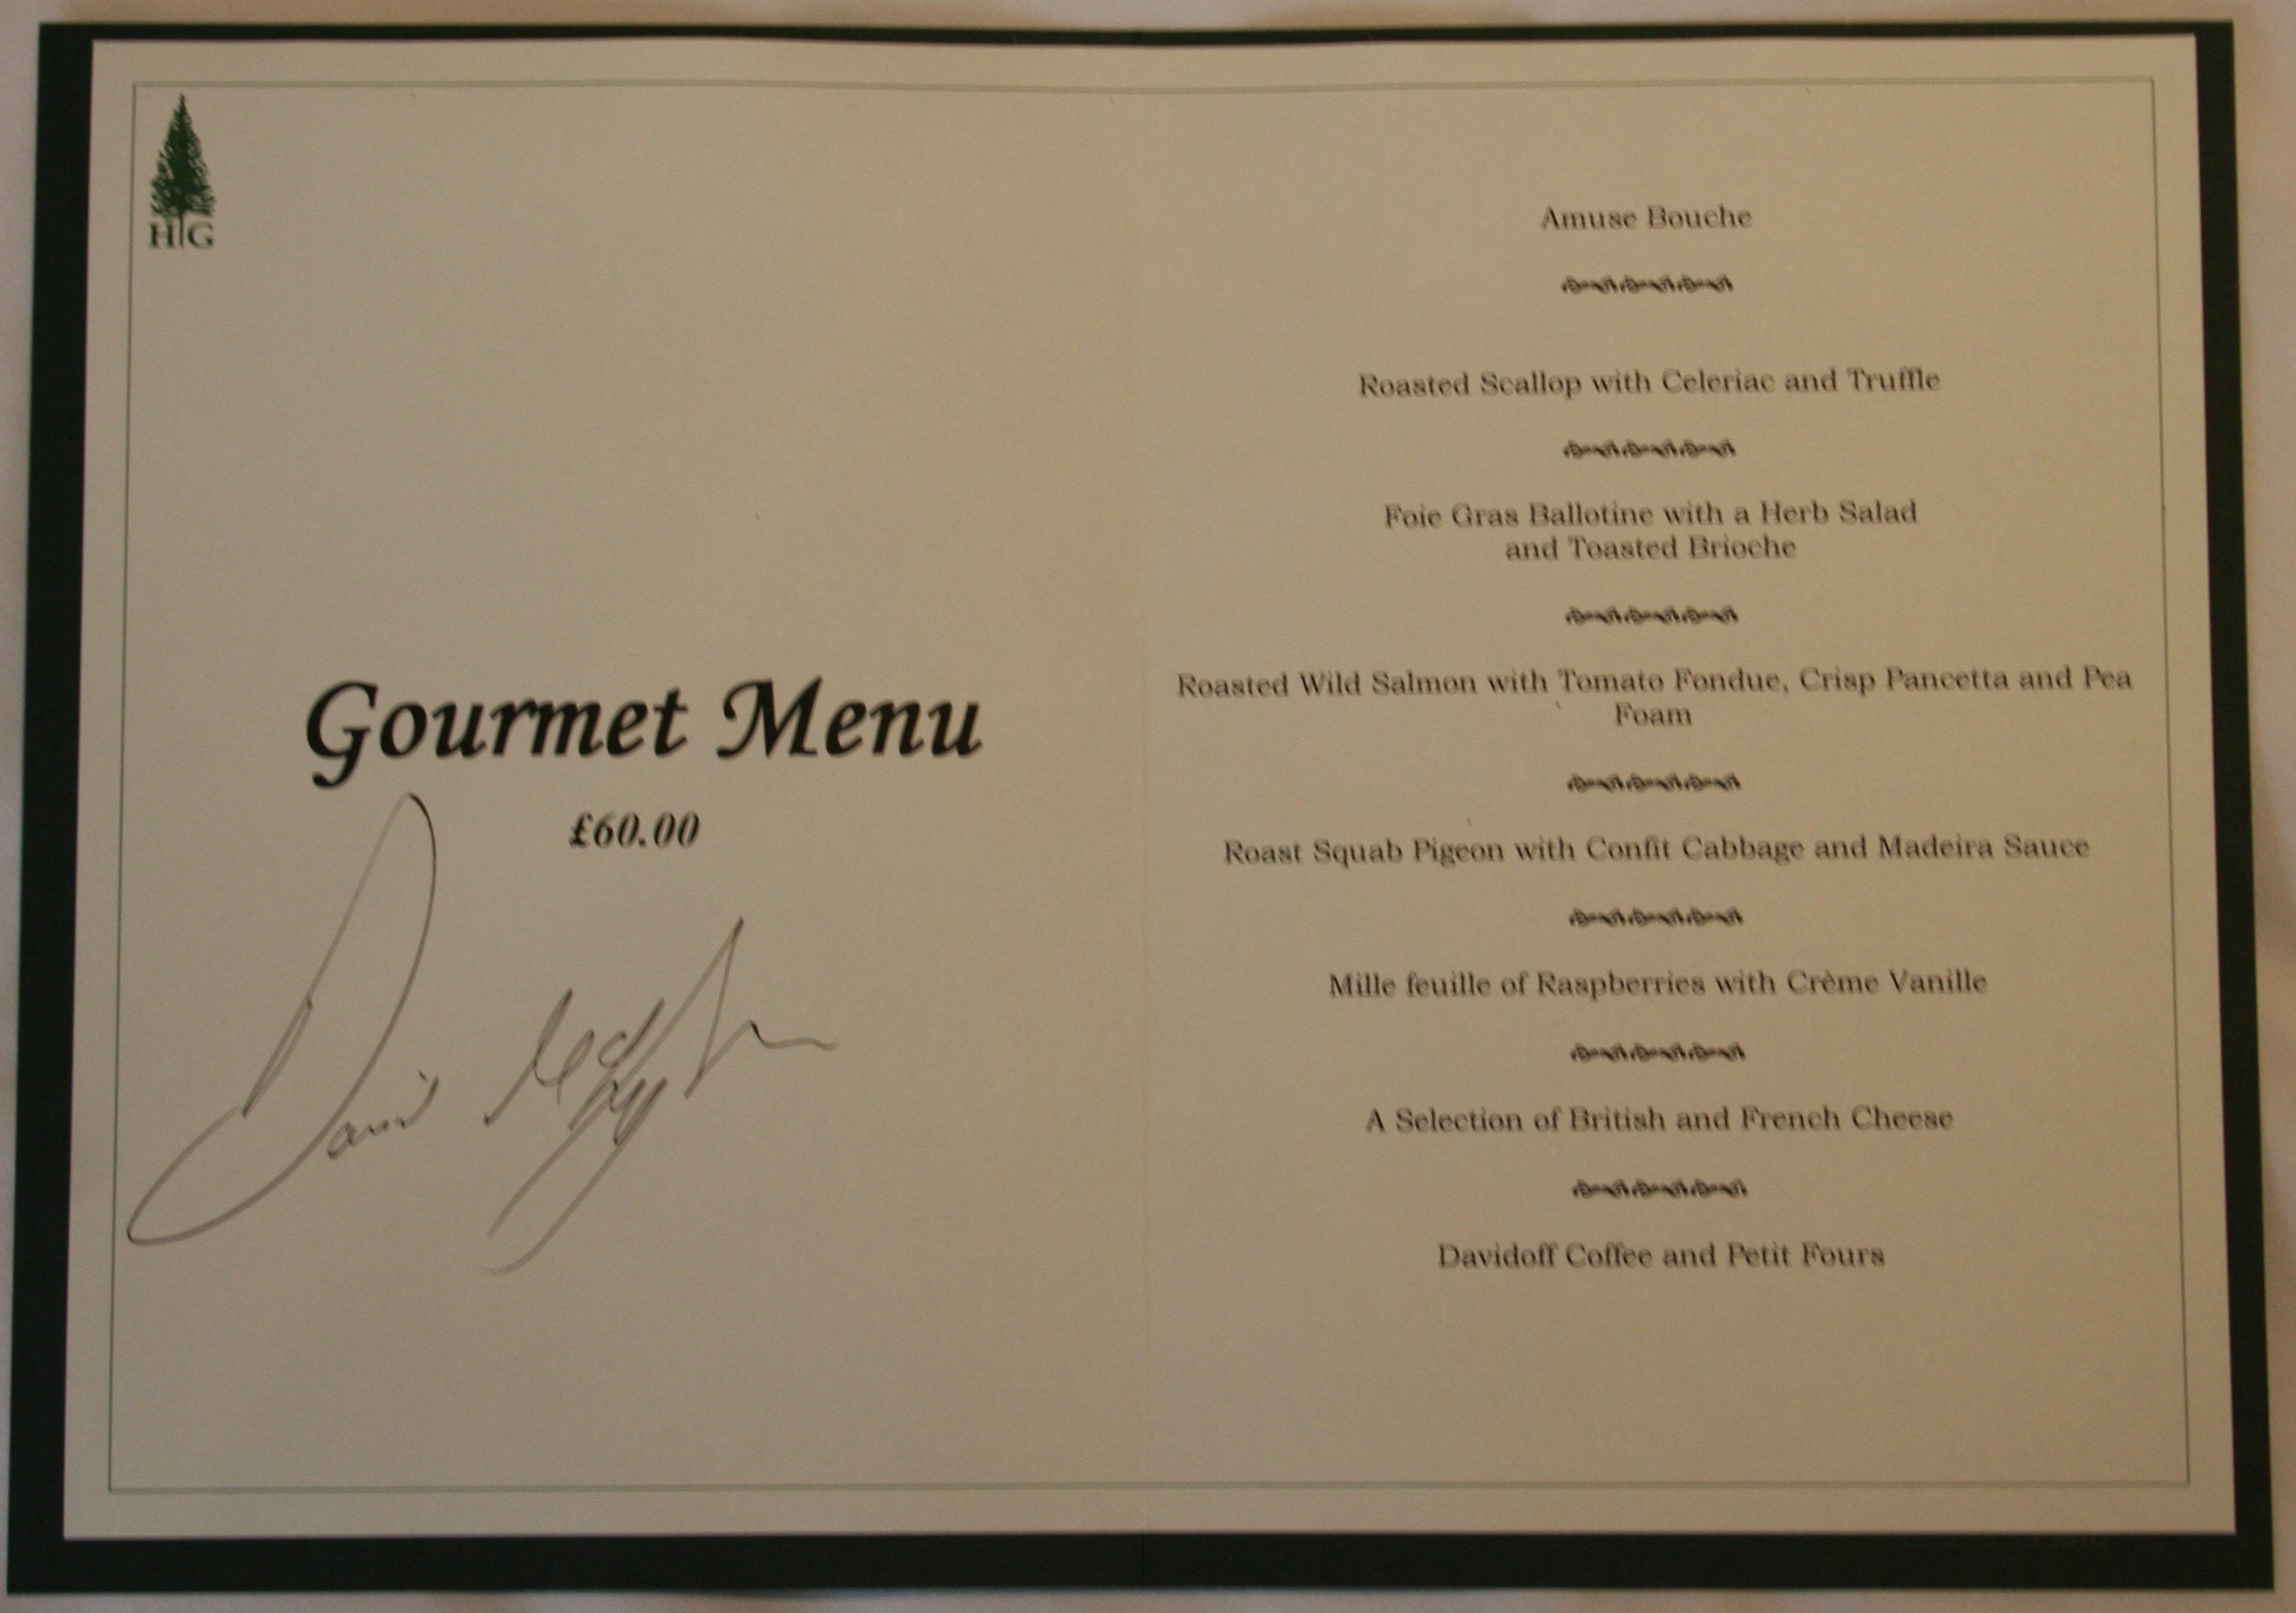 HG
Gourmet Menu
£60.00
Amuse Bouche
Roasted Scallop with Celeriac and Truffle
Foie Gras Ballotine with a Herb Salad
and Toasted Brioche
Roasted Wild Salmon with Tomato Fondue, Crisp Pancetta and Pea
Foam
Roast Squab Pigeon with Confit Cabbage and Madeira Sauce
Mille feuille of Raspberries with Crème Vanille
A Selection of British and French Cheese
Davidoff Coffee and Petit Fours